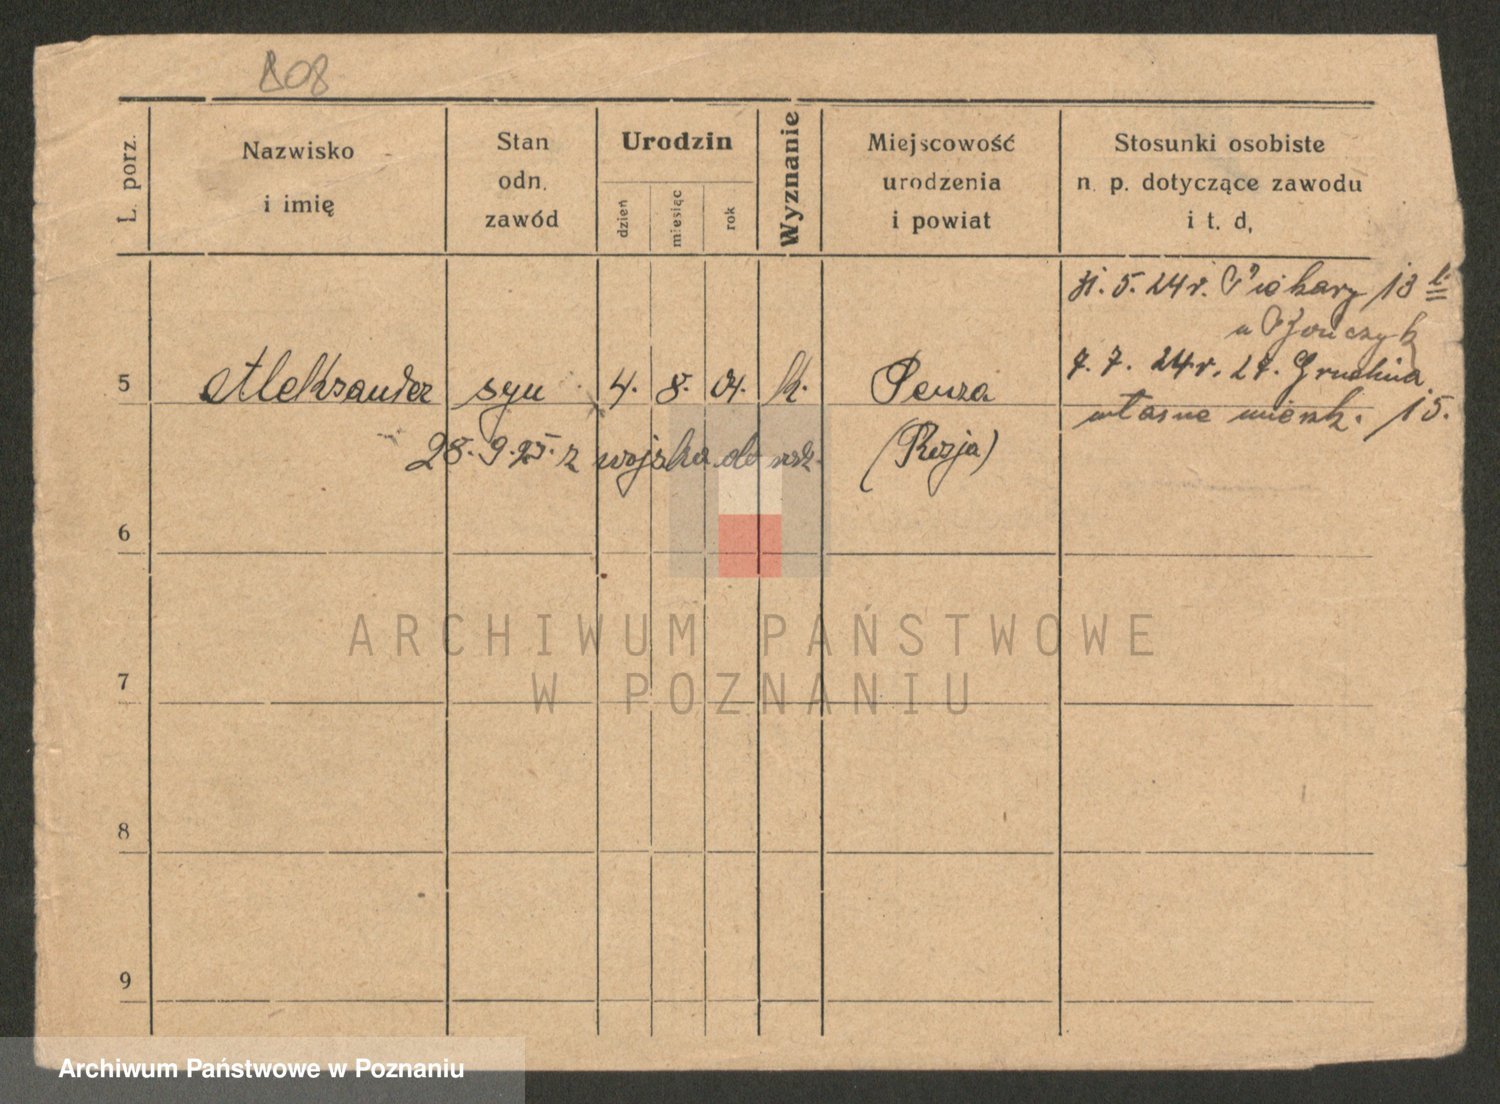 808
L. porz.
Nazwisko
i imię
Stan
odn.
zawód
Urodzin
dzień
miesiąc
rok
Wyznanie
Miejscowość
urodzenia
i powiat
Stosunki osobiste
n. p. dotyczące zawodu
i t. d.
5. 24r. Piekary 13
u
7. 7. 24r. 27. Grudnia
własne mieszk. 15.
5 Aleksander syn 4. 8. 04. k. Penza
28. 9. 25. z wojska do (Rosja)
6
7
8
9
ARCHIWUM PAŃSTWOWE
W POZNANIU
Archiwum Państwowe w Poznaniu